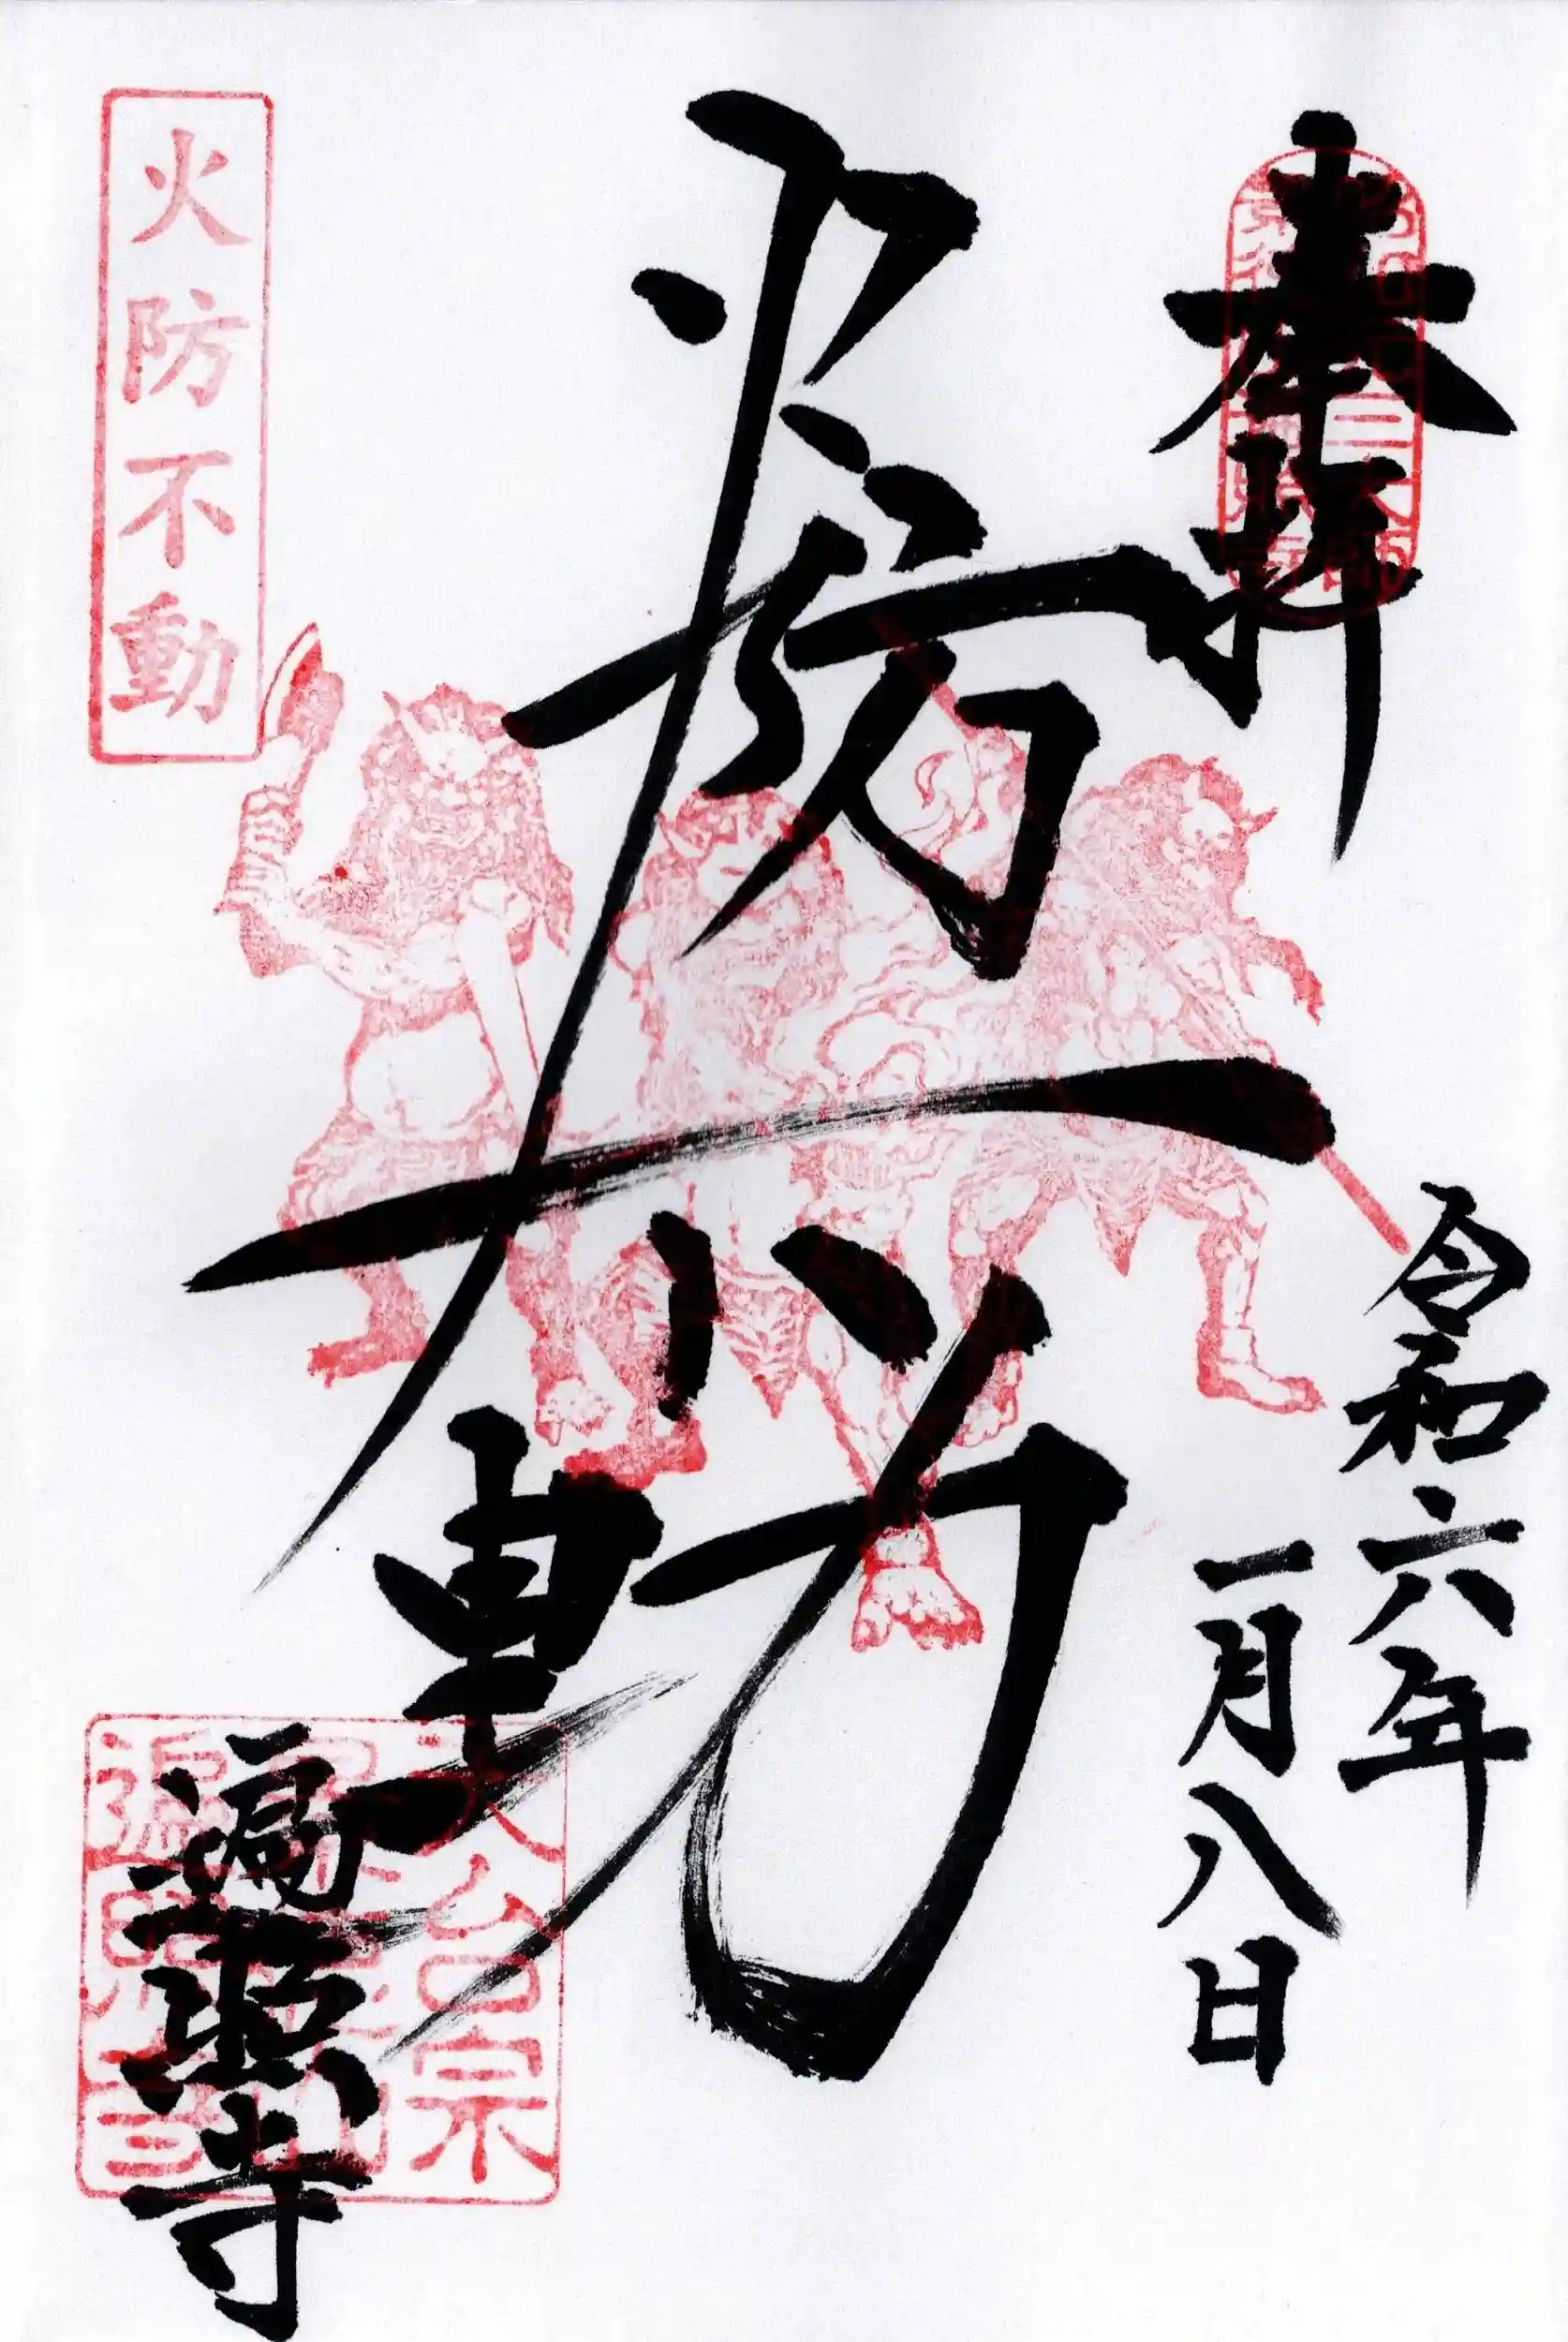 奉拝
令和六年
一月八日
火防不動
遍照寺
火防不動
天台宗